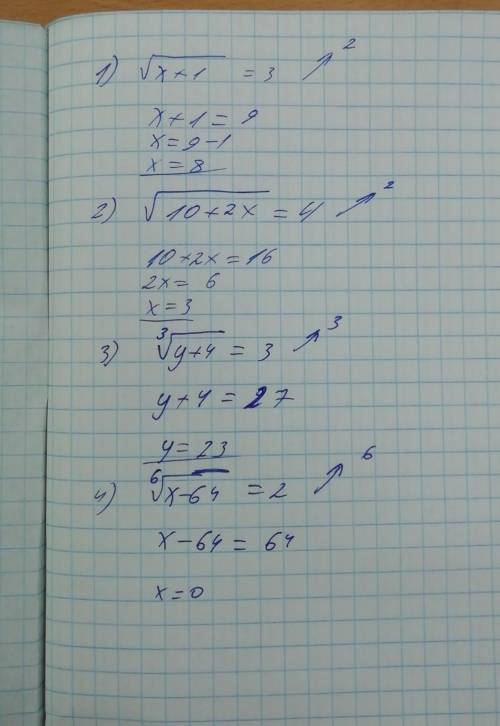 1) √x+1 = 3 ↗²
x+1=9
x=9-1
x=8
2) √10+2x = 4 ↗²
10+2x=16
2x= 6
x=3
3) ³√y+4 = 3 ↗³
y+4=27
y=23
4) ⁶√x-64 = 2 ↗⁶
x-64= 64
x=0